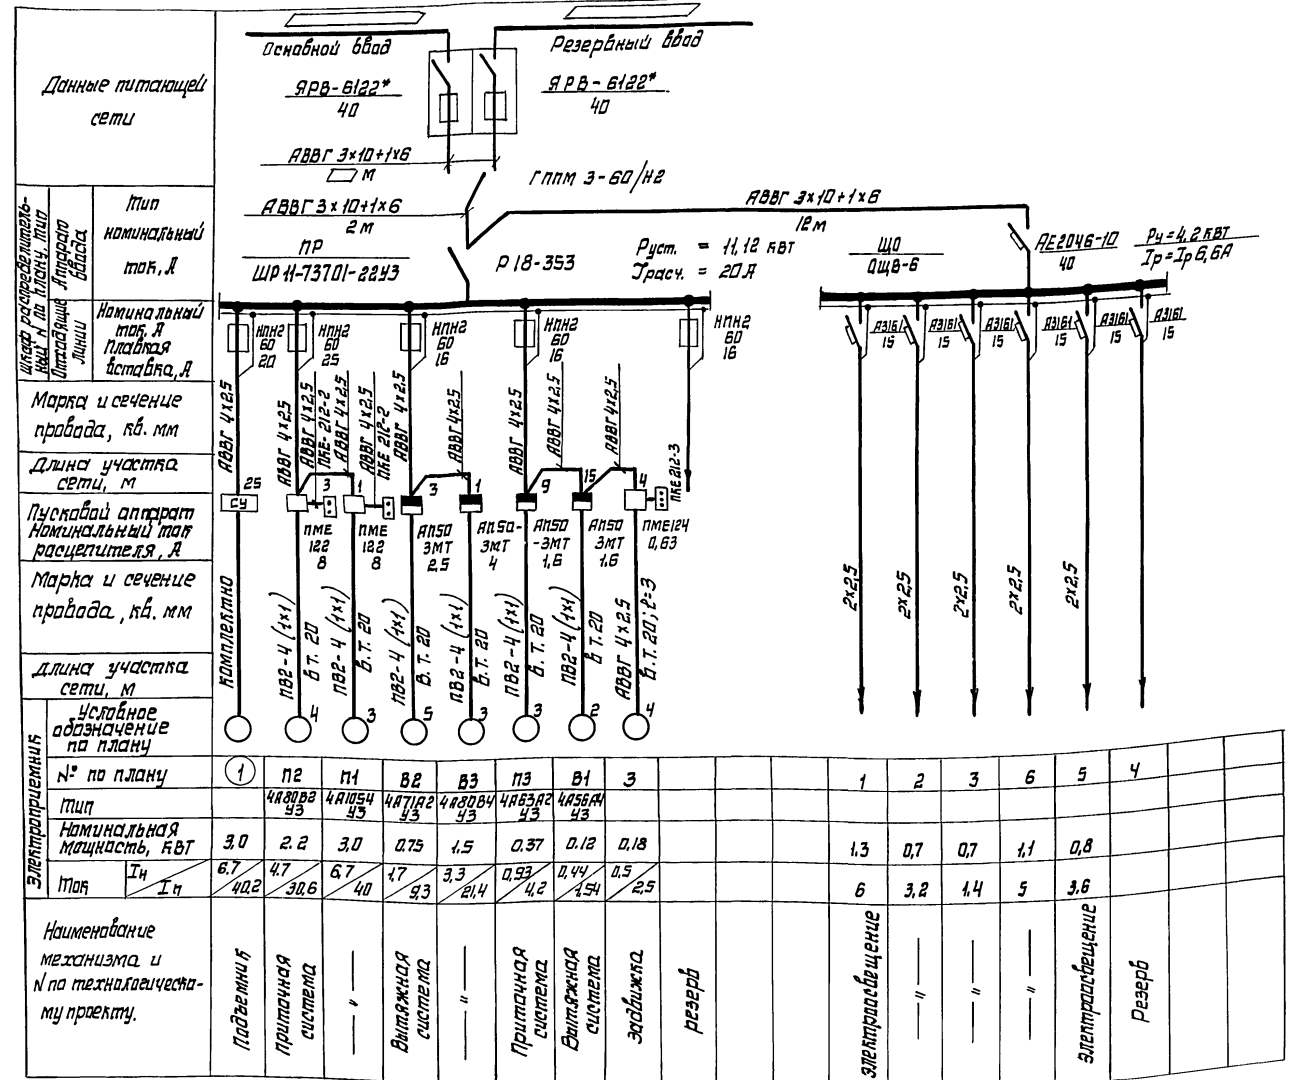 Основной ввод
Резервный ввод
Данные питающей
сети
ЯРВ-6122*
40
ЯРВ-6122*
40
АВВГ 3×10+1×6
м
ГППМ 3-60/Н2
АВВГ 3×10+1×6
2м
АВВГ 3×10+1×6
12м
Шкаф распределитель-
ный N по плану, тип
Аппарат
ввода
Тип
номинальный
ток, А
ПР
ШР 11-73701-22У3
Р 18-353
Руст. = 11,12 кВт
Iрасч. = 20А
ЩО
ОЩВ-6
АЕ2046-10
40
Ру=4,2 кВт
Iр=Iр6,6А
Отходящие
линии
Номинальный
ток, А
Плавкая
вставка, А
НПН2
60
20
НПН2
60
25
НПН2
60
16
НПН2
60
16
НПН2
60
16
А3161
15
А3161
15
А3161
15
А3161
15
А3161
15
А3161
15
Марка и сечение
провода, кв. мм
АВВГ 4×2,5
АВВГ 4×2,5
АВВГ 4×2,5
ПКЕ-212-2
АВВГ 4×2,5
АВВГ 4×2,5
ПКЕ 212-2
АВВГ 4×2,5
АВВГ 4×2,5
АВВГ 4×2,5
АВВГ 4×2,5
АВВГ 4×2,5
ПКЕ 212-3
Длина участка
сети, м
25
3
1
3
1
9
15
4
Пусковой аппарат
Номинальный ток
расцепителя, А
СУ
ПМЕ
122
8
ПМЕ
122
8
АП50
3МТ
2,5
АП50-
3МТ
4
АП50
-3МТ
1,6
АП50
3МТ
1,6
ПМЕ124
0,63
Марка и сечение
провода, кв. мм
комплектно
ПВ2-4 (1×1)
В.Т. 20
ПВ2-4 (1×1)
В.Т. 20
ПВ2-4 (1×1)
В.Т. 20
ПВ2-4 (1×1)
В.Т. 20
ПВ2-4 (1×1)
В.Т. 20
ПВ2-4 (1×1)
В Т. 20
АВВГ 4×2,5
В.Т. 20, ℓ=3
2×2,5
2×2,5
2×2,5
2×2,5
2×2,5
Длина участка
сети, м
Электроприемник
Условное
обозначение
по плану
4
3
5
3
3
2
4
N° по плану
1 П2 П1 В2 В3 П3 В1 3 1 2 3 6 5 4
Тип
4А80В2
У3
4А10S4
У3
4А71А2
У3
4А80В4
У3
4А63А2
У3
4А56А4
У3
Номинальная
мощность, кВт
3,0 2.2 3,0 0.75 1.5 0.37 0.12 0,18 1.3 0,7 0,7 1,1 0,8
Ток Iн / Iп
6.7/40,2 4.7/30,6 6,7/40 1,7/9,3 3,3/21,4 0,93/4,2 0,44/1,54 0,5/2,5 6 3,2 1.4 5 3,6
Наименование
механизма и
N по технологическо-
му проекту.
Подъемник
Приточная
система
— " —
Вытяжная
система
— " —
Приточная
система
Вытяжная
система
задвижка
резерв
Электроосвещение
— " —
— " —
— " —
Электроосвещение
Резерв